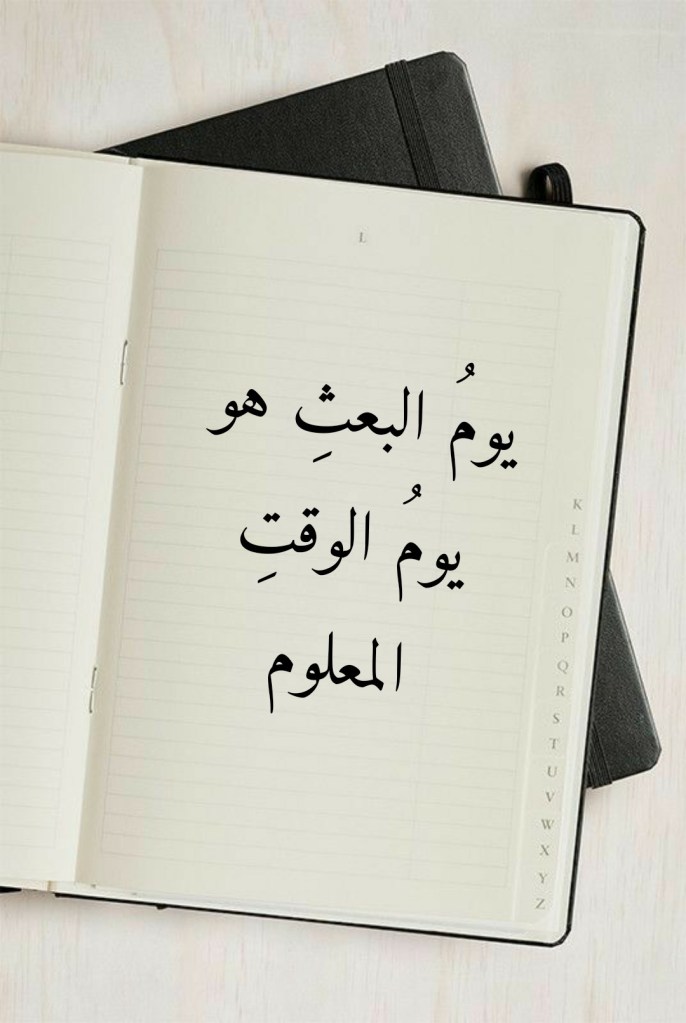 L
يومُ البعثِ هو
يومُ الوقتِ
المعلوم
K
L
M
N
O
P
Q
R
S
T
U
V
W
X
Y
Z